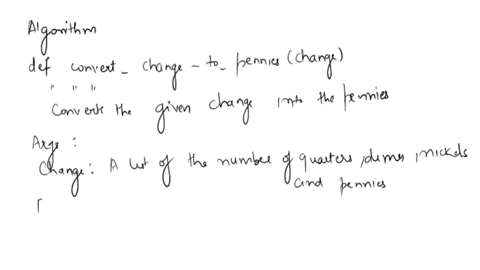 Algorithm
def convert_ change - to_ pennies (change)
" " "
Convert the given change into the pennies
Args :
Change : A list of the number of quarters , dimes , nickels
and pennies
[